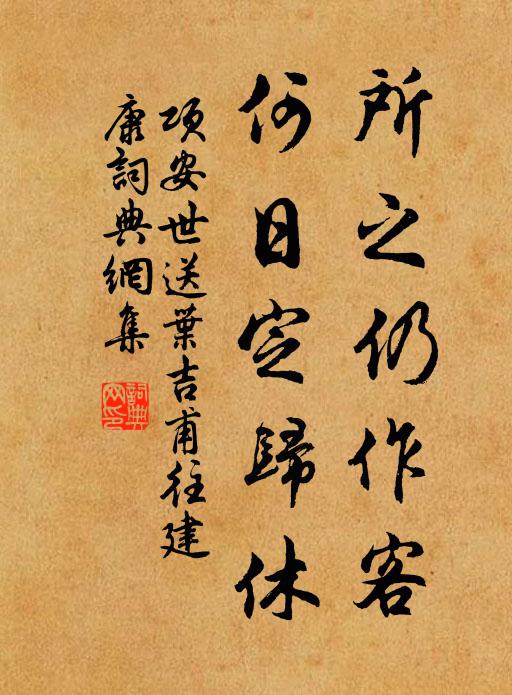 所之仍作客
何日定歸休
項安世送葉吉甫往建
康詞典網集
詞典
网印